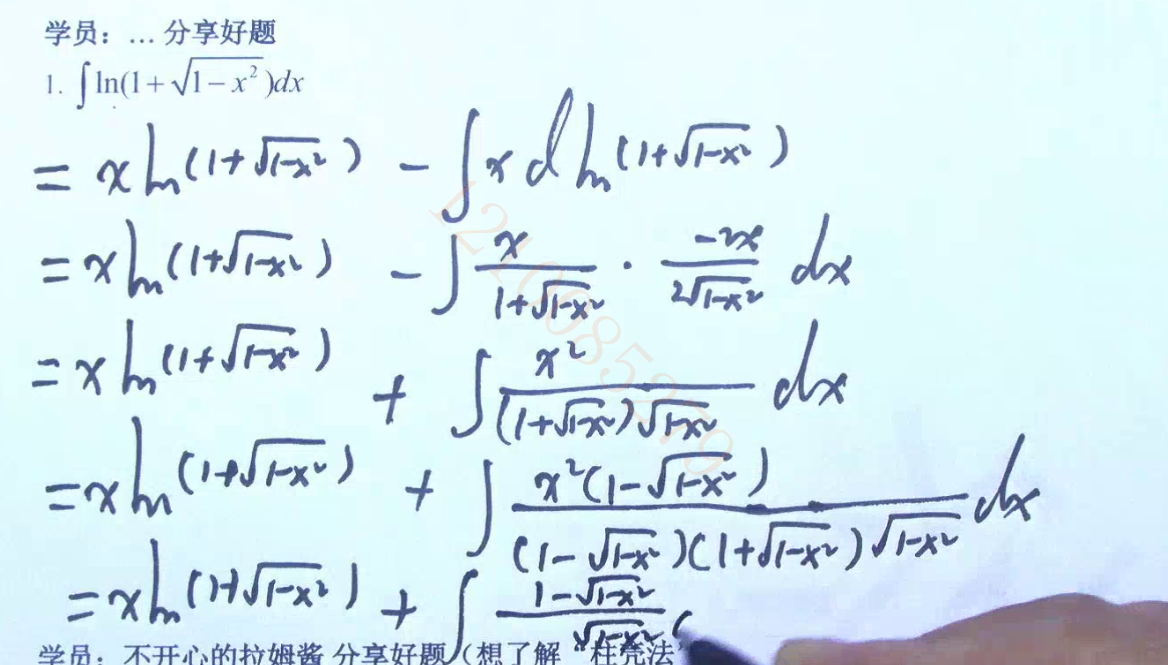 学员：... 分享好题
1. ∫ln(1+√(1-x²))dx
= x ln(1+√(1-x²)) - ∫x d ln(1+√(1-x²))
= x ln(1+√(1-x²)) - ∫ x/(1+√(1-x²)) · (-2x)/(2√(1-x²)) dx
= x ln(1+√(1-x²)) + ∫ x²/((1+√(1-x²))√(1-x²)) dx
= x ln(1+√(1-x²)) + ∫ x²(1-√(1-x²))/((1-√(1-x²))(1+√(1-x²))√(1-x²)) dx
= x ln(1+√(1-x²)) + ∫ (1-√(1-x²))/√(1-x²)
学员：不开心的拉姆酱 分享好题（想了解“柱壳法”